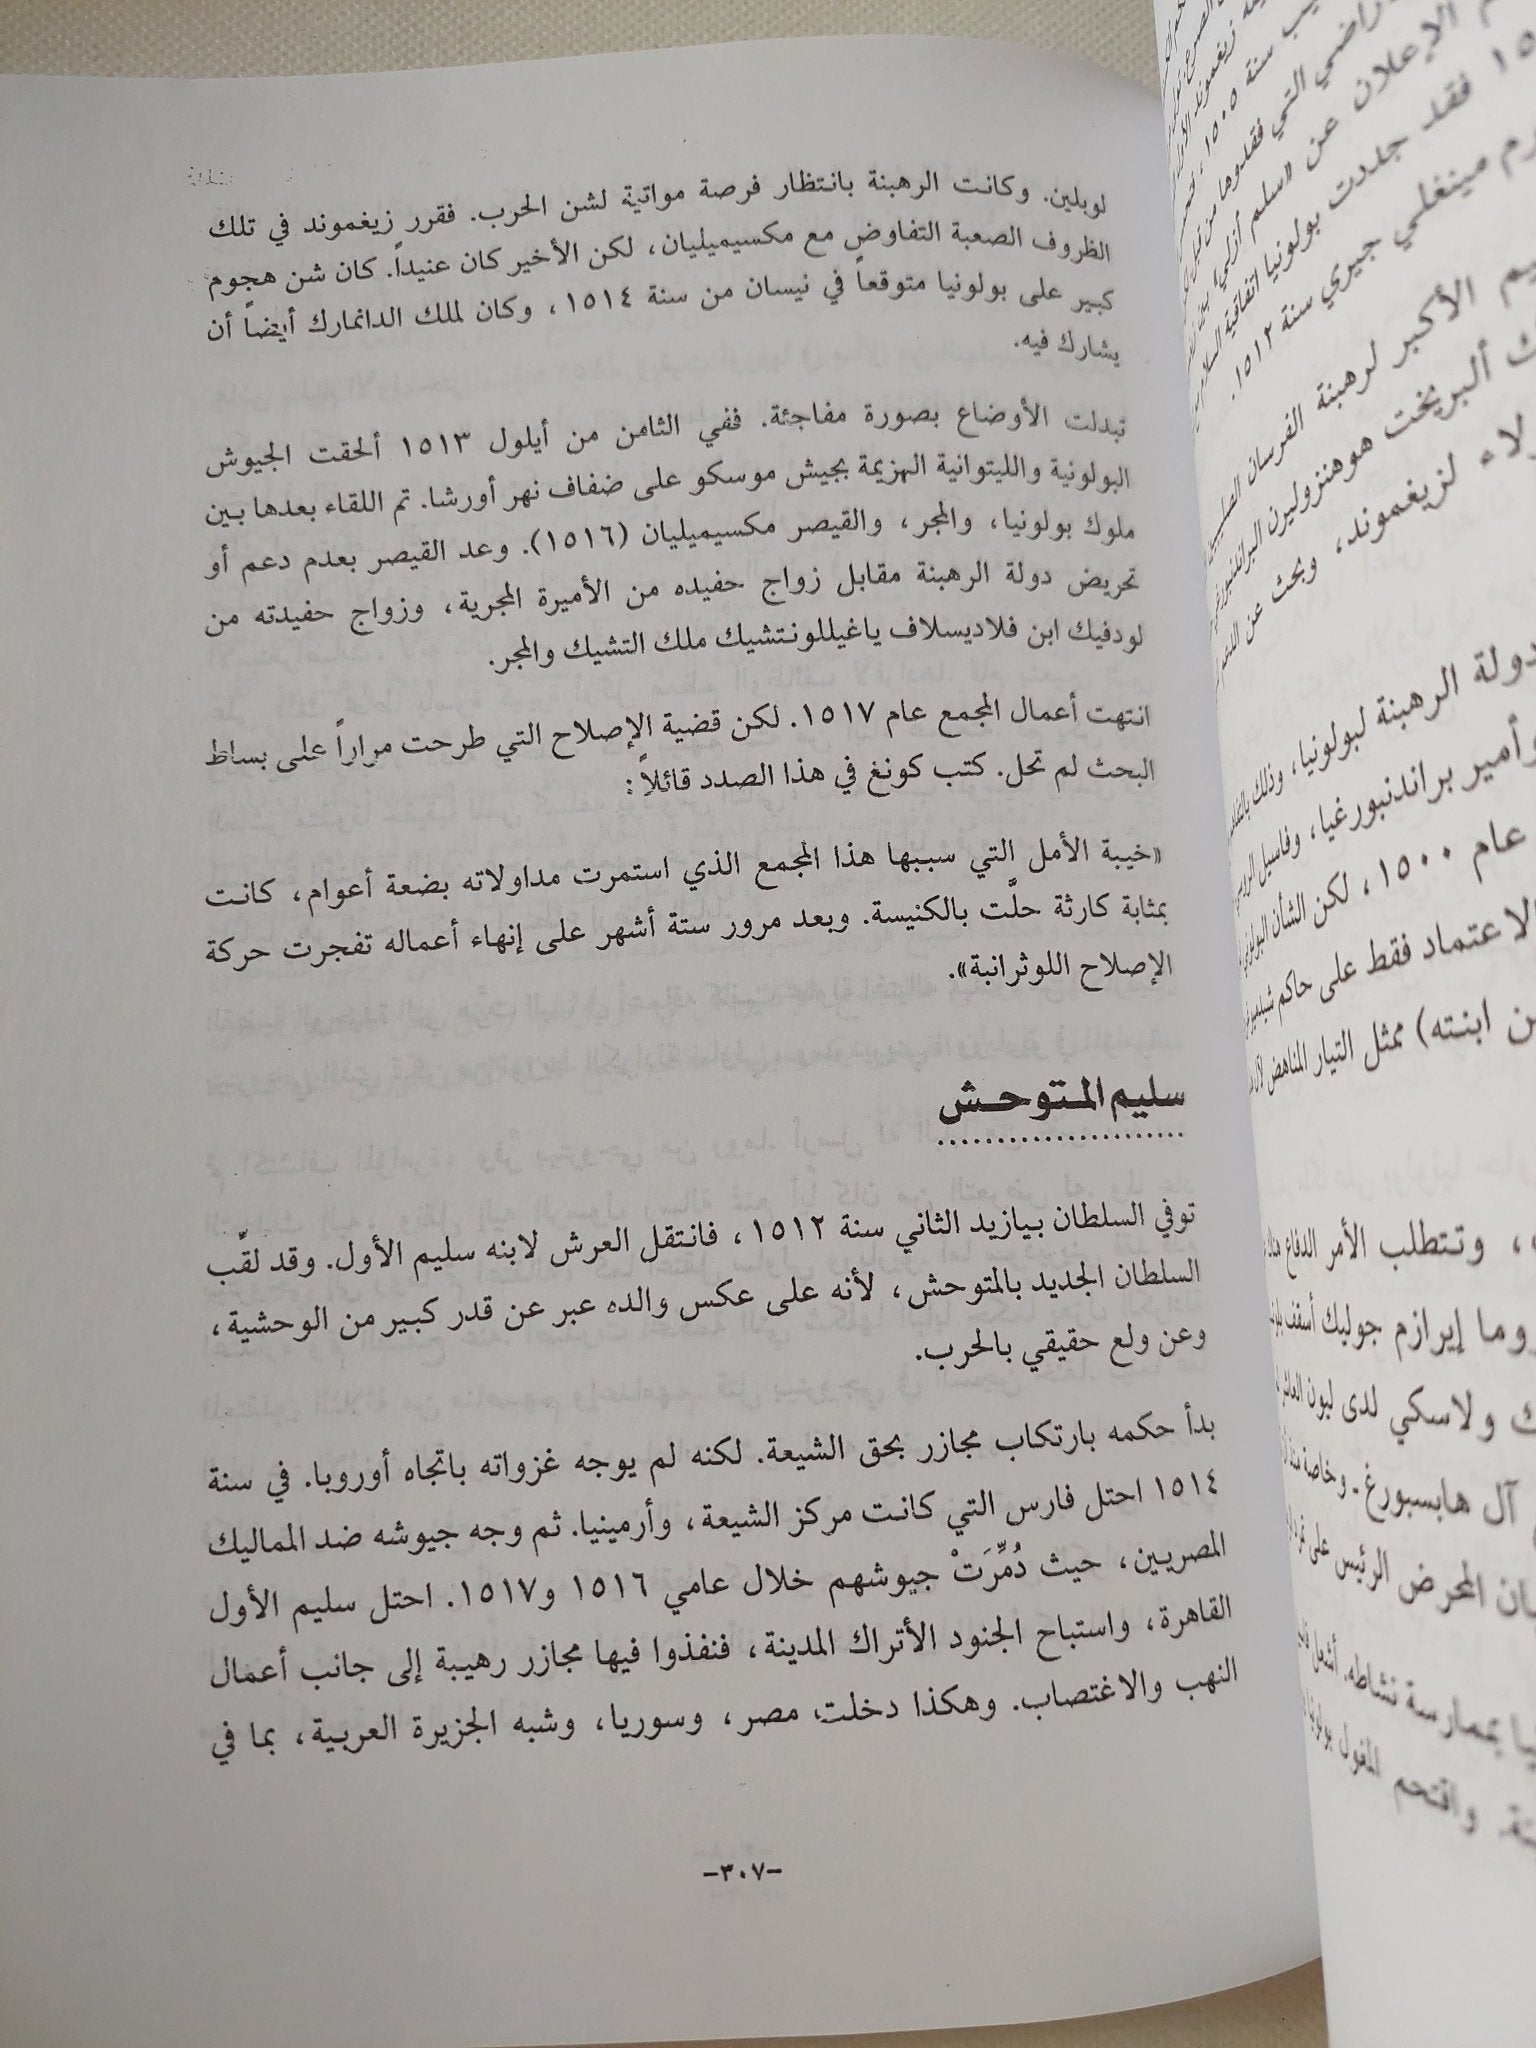 لوبلين. وكانت الرهبنة بانتظار فرصة مواتية لشن الحرب. فقرر زيغموند في تلك
الظروف الصعبة التفاوض مع مكسيميليان، لكن الأخير كان عنيداً. كان شن هجوم
كبير على بولونيا متوقعاً في نيسان من سنة ١٥١٤، وكان لملك الدانمارك أيضاً أن
يشارك فيه.
تبدلت الأوضاع بصورة مفاجئة. ففي الثامن من أيلول ١٥١٣ ألحقت الجيوش
البولونية والليتوانية الهزيمة بجيش موسكو على ضفاف نهر أورشا. تم اللقاء بعدها بين
ملوك بولونيا، والمجر، والقيصر مكسيميليان (١٥١٦). وعد القيصر بعدم دعم أو
تحريض دولة الرهبنة مقابل زواج حفيده من الأميرة المجرية، وزواج حفيدته من
لودفيك ابن فلاديسلاف ياغيللونتشيك ملك التشيك والمجر.
انتهت أعمال المجمع عام ١٥١٧. لكن قضية الإصلاح التي طرحت مراراً على بساط
البحث لم تحل. كتب كونغ في هذا الصدد قائلاً:
«خيبة الأمل التي سببها هذا المجمع الذي استمرت مداولاته بضعة أعوام، كانت
بمثابة كارثة حلَّت بالكنيسة. وبعد مرور ستة أشهر على إنهاء أعماله تفجرت حركة
الإصلاح اللوثرانية».
سليم المتوحش
توفي السلطان بيازيد الثاني سنة ١٥١٢، فانتقل العرش لابنه سليم الأول. وقد لقّب
السلطان الجديد بالمتوحش، لأنه على عكس والده عبر عن قدر كبير من الوحشية،
وعن ولع حقيقي بالحرب.
بدأ حكمه بارتكاب مجازر بحق الشيعة. لكنه لم يوجه غزواته باتجاه أوروبا. في سنة
١٥١٤ احتل فارس التي كانت مركز الشيعة، وأرمينيا. ثم وجه جيوشه ضد المماليك
المصريين، حيث دُمِّرَتْ جيوشهم خلال عامي ١٥١٦ و١٥١٧. احتل سليم الأول
القاهرة، واستباح الجنود الأتراك المدينة، فنفذوا فيها مجازر رهيبة إلى جانب أعمال
النهب والاغتصاب. وهكذا دخلت مصر، وسوريا، وشبه الجزيرة العربية، بما في
-٣٠٧-
الإعلان عن «سلم أزلي» بين
فقد جددت بولونيا اتفاقية السلام
مينغلي جيري سنة ١٥١٢.
الأكبر لرهبنة الفرسان
ألبريخت هوهنزوليرن
لزيغموند، وبحث عن
دولة الرهبنة لبولونيا، وذلك
وأمير براندنبورغيا، وفاسيل
عام ١٥٠٠، لكن الشأن
الاعتماد فقط على حاكم
ابنته) ممثل التيار المناهض
وتتطلب الأمر الدفاع
إيرازم جوليك أسقف
ولاسكي لدى ليون
آل هابسبورغ. وخاصة
المحرض الرئيس على
بممارسة نشاطه. أشعل
واقتحم المغول